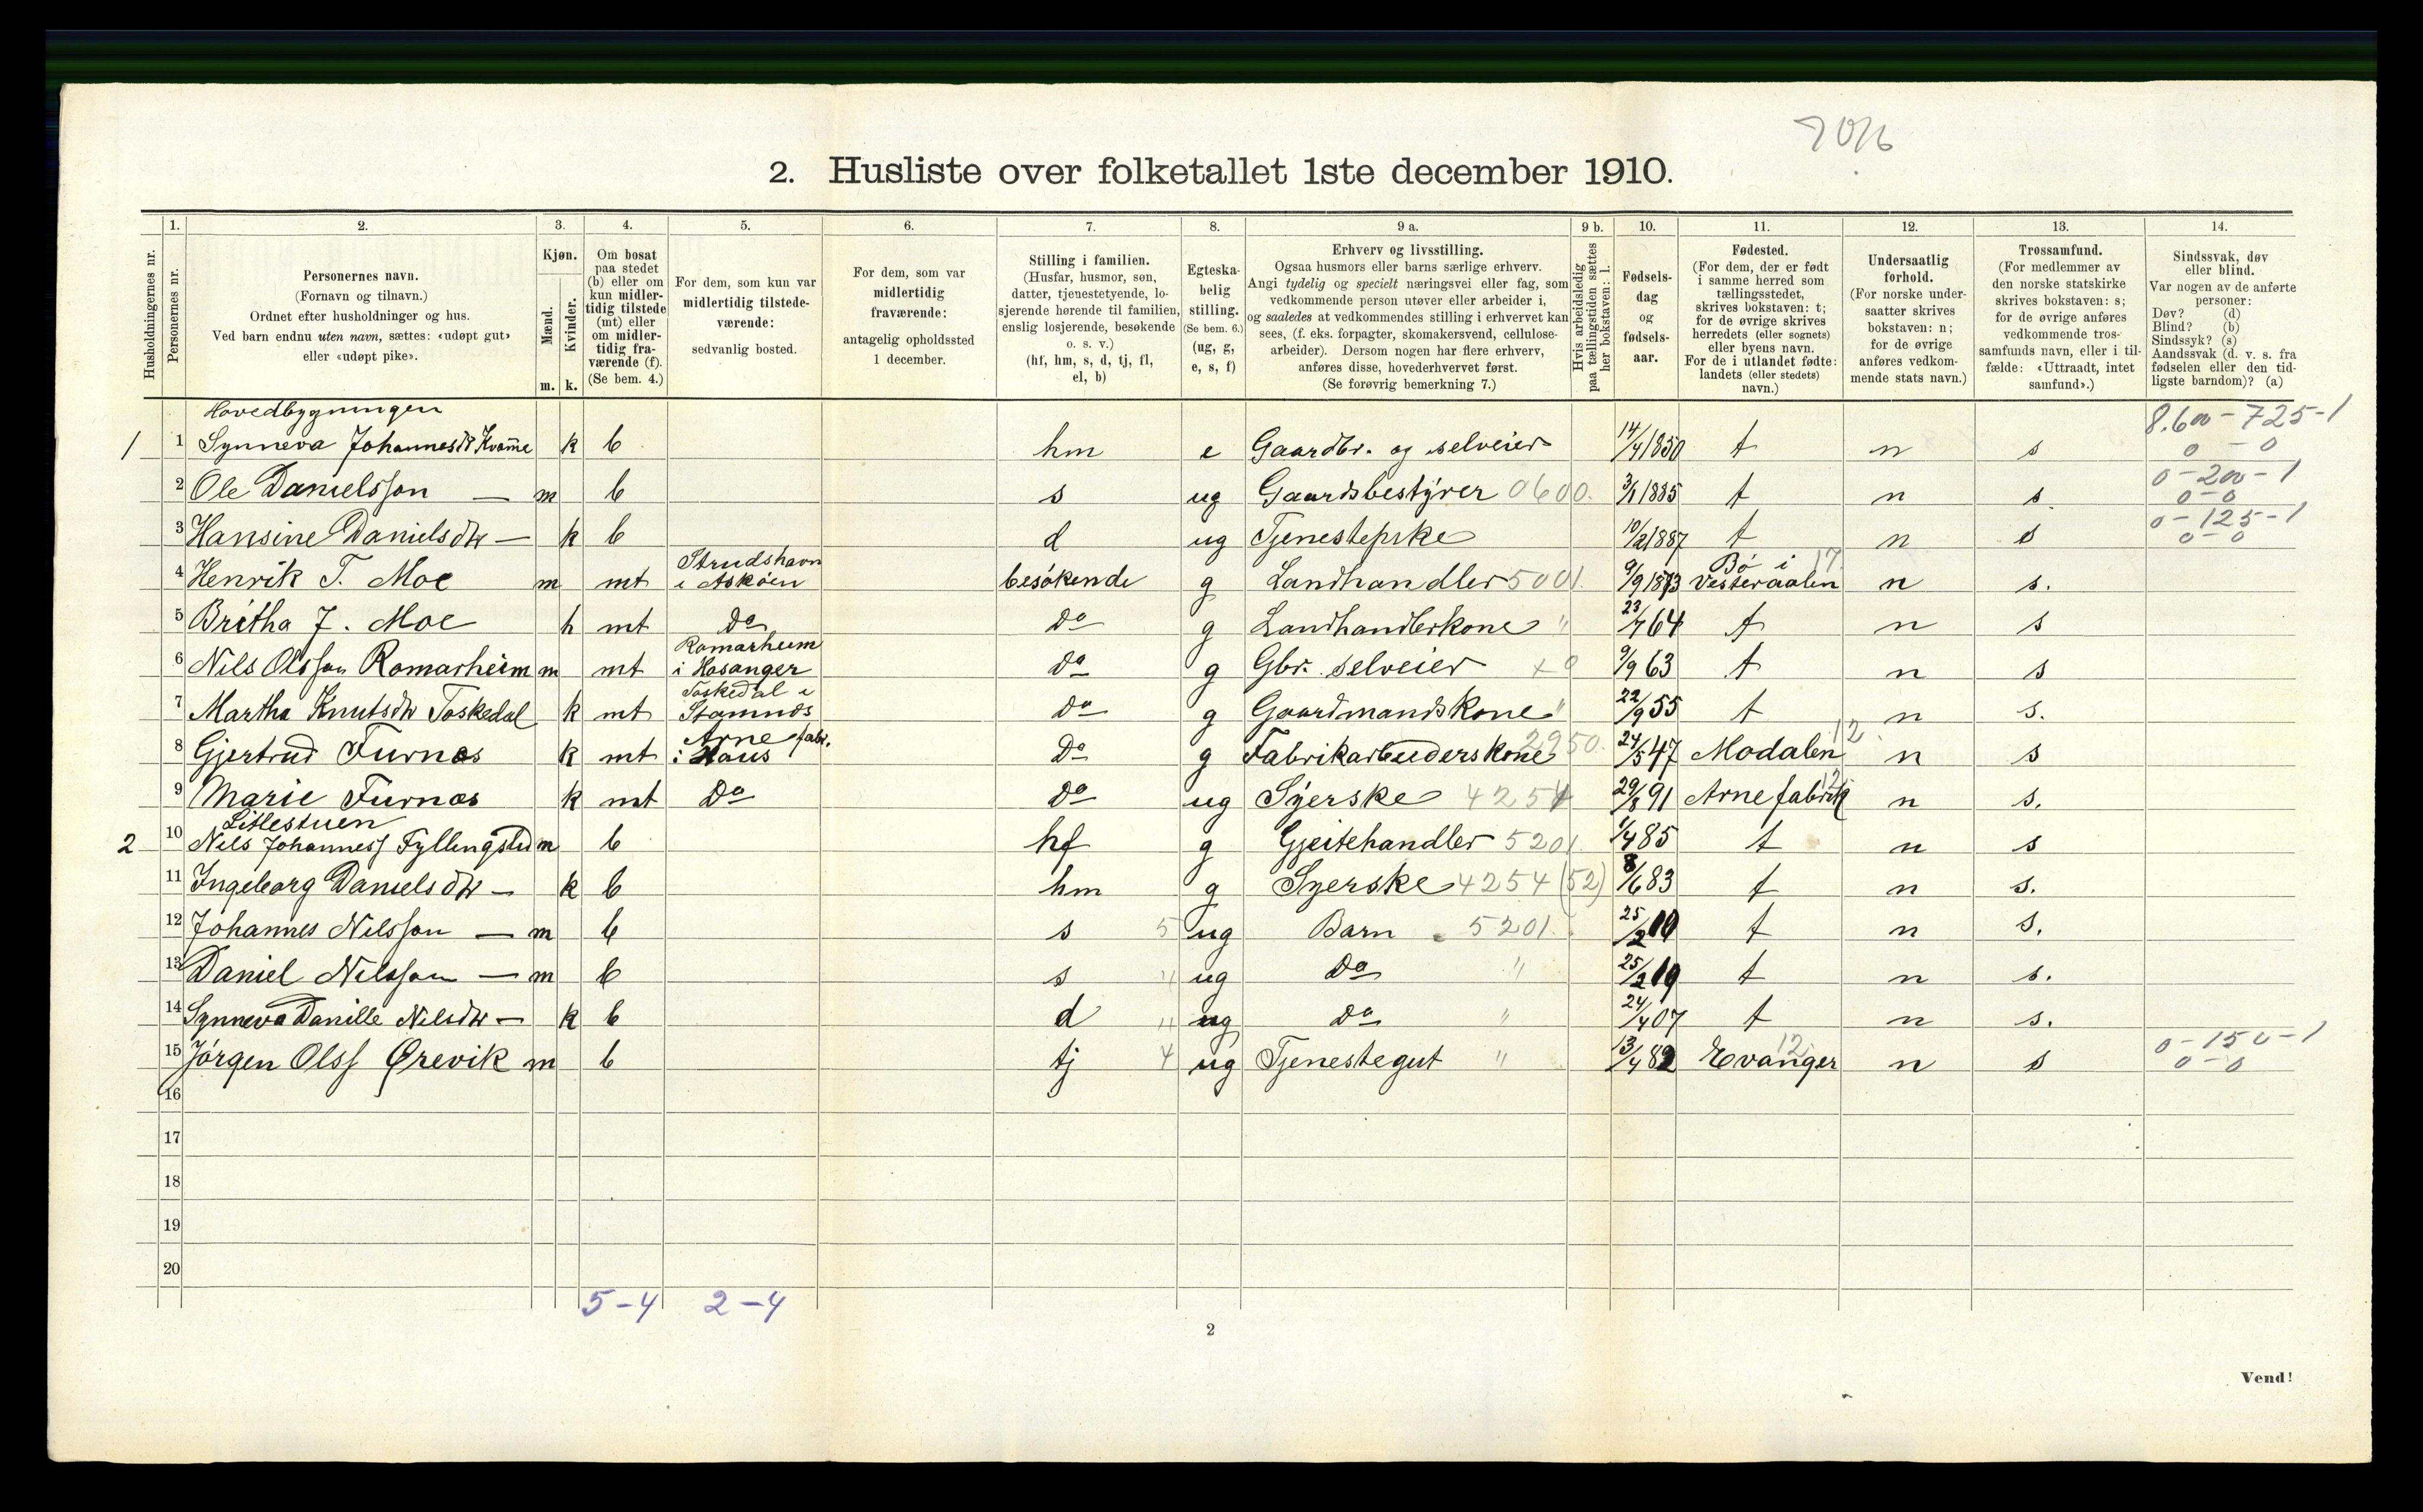 2. Husliste over folketallet 1ste december 1910.
1. 2. 3. 4. 5. 6. 7. 8. 9 a. 9 b. 10. 11. 12. 13. 14.
Husholdningernes nr.
Personernes nr.
Personernes navn.
(Fornavn og tilnavn.)
Ordnet efter husholdninger og hus.
Ved barn endnu uten navn, sættes: «udøpt gut»
eller «udøpt pike».
Kjøn.
Mænd.
Kvinder.
m. k.
Om bosat
paa stedet
(b) eller om
kun midler-
tidig tilstede
(mt) eller
om midler-
tidig fra-
værende (f).
(Se bem. 4.)
For dem, som kun var
midlertidig tilstede-
værende:
sedvanlig bosted.
For dem, som var
midlertidig
fraværende:
antagelig opholdssted
1 december.
Stilling i familien.
(Husfar, husmor, søn,
datter, tjenestetyende, lo-
sjerende hørende til familien,
enslig losjerende, besøkende
o. s. v.)
(hf, hm, s, d, tj, fl,
el, b)
Egteska-
belig
stilling.
(Se bem. 6.)
(ug, g,
e, s, f)
Erhverv og livsstilling.
Ogsaa husmors eller barns særlige erhverv.
Angi tydelig og specielt næringsvei eller fag, som
vedkommende person utøver eller arbeider i,
og saaledes at vedkommendes stilling i erhvervet kan
sees, (f. eks. forpagter, skomakersvend, cellulose-
arbeider). Dersom nogen har flere erhverv,
anføres disse, hovederhvervet først.
(Se forøvrig bemerkning 7.)
Hvis arbeidsledig
paa tællingstiden sættes
her bokstaven: l.
Fødsels-
dag
og
fødsels-
aar.
Fødested.
(For dem, der er født
i samme herred som
tællingsstedet,
skrives bokstaven: t;
for de øvrige skrives
herredets (eller sognets)
eller byens navn.
For de i utlandet fødte:
landets (eller stedets)
navn.)
Undersaatlig
forhold.
(For norske under-
saatter skrives
bokstaven: n;
for de øvrige
anføres vedkom-
mende stats navn.)
Trossamfund.
(For medlemmer av
den norske statskirke
skrives bokstaven: s;
for de øvrige anføres
vedkommende tros-
samfunds navn, eller i til-
fælde: «Uttraadt, intet
samfund».)
Sindssvak, døv
eller blind.
Var nogen av de anførte
personer:
Døv? (d)
Blind? (b)
Sindssyk? (s)
Aandssvak (d. v. s. fra
fødselen eller den tid-
ligste barndom)? (a)
Hovedbygningen
8.600 - 725 - 1
1 1 Synneva Johannesdtr Kvamme k b hm e Gaardbr. og selveier 14/4 1850 t n s 0 - 0
0 - 200 - 1
2 Ole Danielsson — m b s ug Gaardsbestyrer 0600. 3/1 1885 t n s. 0 - 0
0 - 125 - 1
3 Hansine Danielsdtr — k b d ug Tjenestepike 10/2 1887 t n s 0 - 0
Strudshavn Bø i 17
4 Henrik T. Moe m mt i Askøen besøkende g Landhandler 5001. 9/9 1873 Vesteraalen n s.
5 Britha J. Moe k mt Do Do g Landhandlerkone " 23/7 64 t n s
Romarheim
6 Nils Olsson Romarheim m mt i Hosanger Do g Gbr. selveier x0 9/9 63 t n s
Toskedal i
7 Martha Knutsdtr Toskedal k mt Stamnes Do g Gaardmandskone " 22/9 55 t n s.
Arne fabr. 2950. 12
8 Gjertrud Furnes k mt i Haus Do g Fabrikarbeiderskone 24/5 47 Modalen n s
12
9 Marie Furnes k mt Do Do ug Syerske 4254 29/8 91 Arne fabrik n s.
Litlestuen
2 10 Nils Johanness Fyllingslid m b hf g Gjeitehandler 5201 1/4 85 t n s
11 Ingeborg Danielsdtr — k b hm g Syerske 4254 (52) 8/6 83 t n s.
12 Johannes Nilsson — m b s 5 ug Barn 5201. 25/2 10 t n s.
13 Daniel Nilsson — m b s " ug Do " 25/2 10 t n s.
14 Synneva Danille Nilsdtr — k b d " ug Do " 24/4 07 t n s.
12 0 - 150 - 1
15 Jørgen Olss Ørevik m b tj 4 ug Tjenestegut " 13/4 82 Evanger n s 0 - 0
16
17
18
19
20
5 - 4 2 - 4
2
Vend!